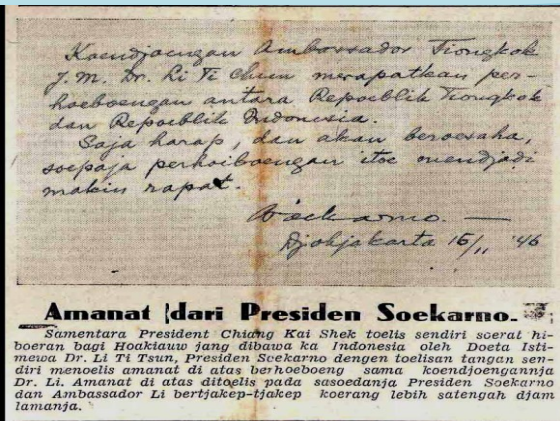 Koendjoengan Ambassador Tiongkok
J.M. Dr. Li Ti Chun merapatkan per-
hoeboengan antara Repoeblik Tiongkok
dan Repoeblik Indonesia.
Saja harap, dan akan beroesaha,
soepaja perhoeboengan itoe mendjadi
makin rapat.
Soekarno.—
Djokjakarta 15/11 '46
Amanat dari Presiden Soekarno.
Samentara President Chiang Kai Shek toelis sendiri soerat hi-
boeran bagi Hoakiauw jang dibawa ka Indonesia oleh Doeta Isti-
mewa Dr. Li Ti Tsun, Presiden Soekarno dengen toelisan tangan sen-
diri menoelis amanat di atas berhoeboeng sama koendjoengannja
Dr. Li. Amanat di atas ditoelis pada sasoedanja Presiden Soekarno
dan Ambassador Li bertjakep-tjakep koerang lebih satengah djam
lamanja.